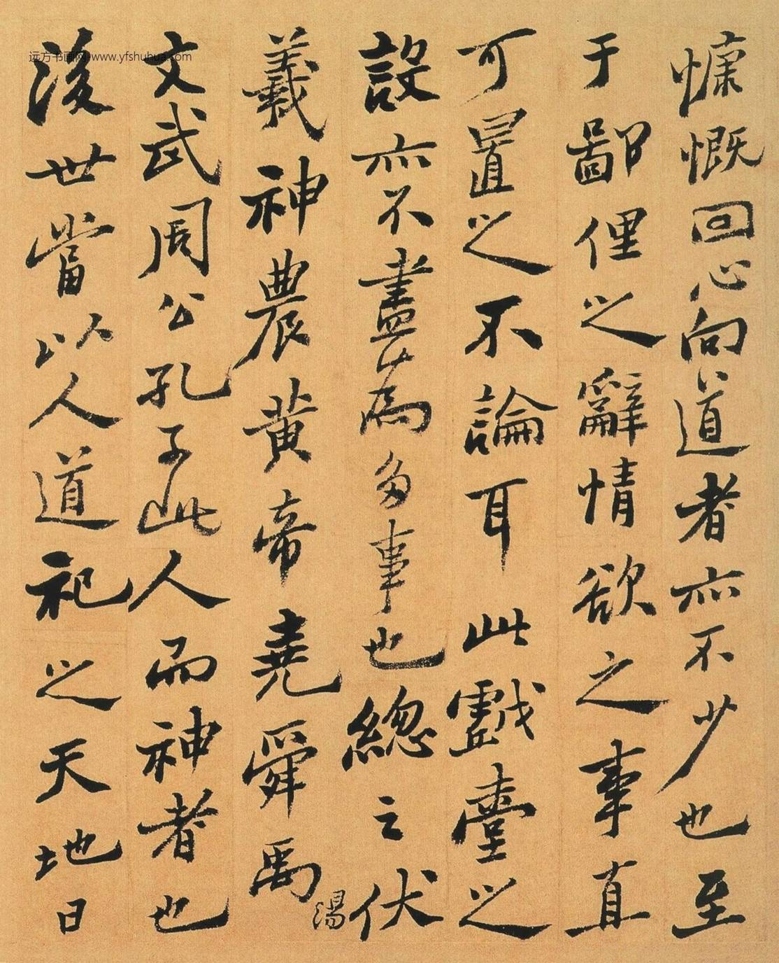 远方书画网 www.yfshuhua.com
慷慨回心向道者亦不少也至
于鄙俚之辭情欲之事直
可置之不論耳此戲臺之
設亦不盡為多事也總之伏
羲神農黃帝堯舜禹湯
文武周公孔子此人而神者也
後世當以人道祀之天地日